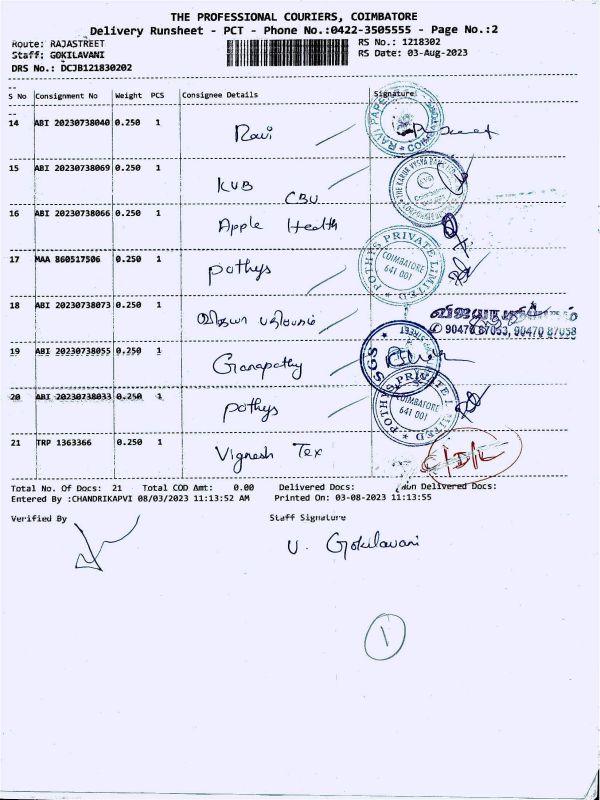 THE PROFESSIONAL COURIERS, COIMBATORE
Delivery Runsheet - PCT - Phone No.:0422-3505555 - Page No.:2
Route: RAJASTREET RS No.: 1218302
Staff: GOKILAVANI RS Date: 03-Aug-2023
DRS No.: DCJB121830202
S No Consignment No Weight PCS Consignee Details Signature
14 ABI 20230738040 0.250 1 Ravi
15 ABI 20230738069 0.250 1 KVB CBU
16 ABI 20230738066 0.250 1 Apple Health
17 MAA 860517506 0.250 1 pothys
POTHYS PRIVATE LIMITED
COIMBATORE
641 001
18 ABI 20230738073 0.250 1 விஜயா பதிப்பகம்
விஜயா பதிப்பகம்
90470 87053, 90470 87058
19 ABI 20230738055 0.250 1 Ganapathy
SGS
20 ABI 20230738033 0.250 1 pothys
POTHYS PRIVATE LIMITED
COIMBATORE
641 001
21 TRP 1363366 0.250 1 Vignesh Tex
Total No. Of Docs: 21 Total COD Amt: 0.00 Delivered Docs: Non Delivered Docs:
Entered By :CHANDRIKAPVI 08/03/2023 11:13:52 AM Printed On: 03-08-2023 11:13:55
Verified By Staff Signature
U. Gokilavani
1